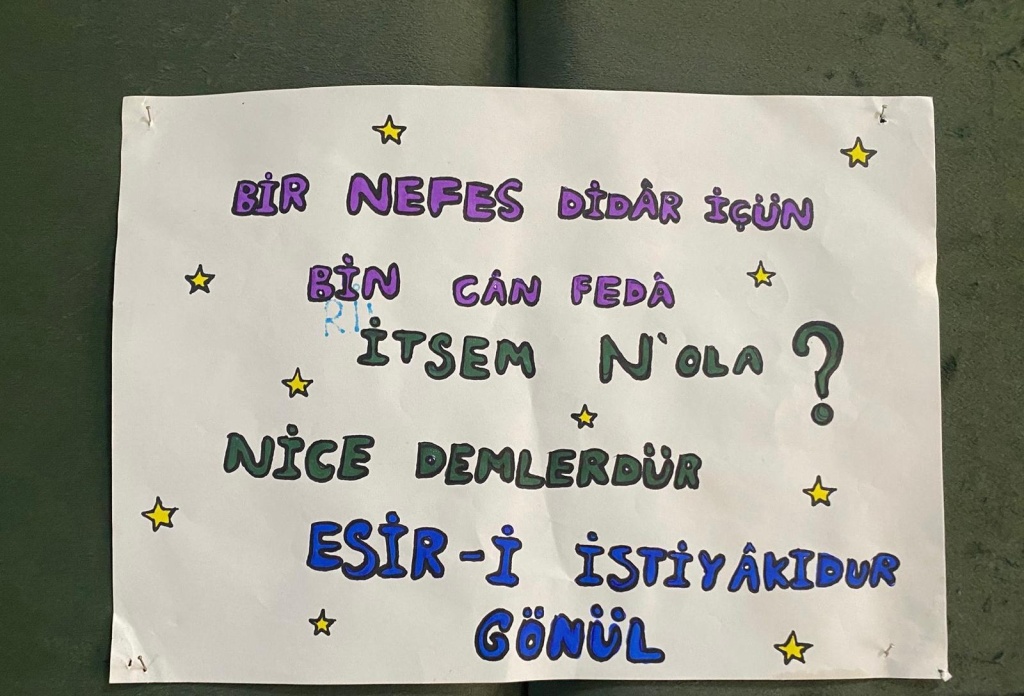 BİR NEFES DİDÂR İÇÜN
BİN CÂN FEDÂ
İTSEM N'OLA ?
NİCE DEMLERDÜR
ESİR-İ İSTİYÂKIDUR
GÖNÜL